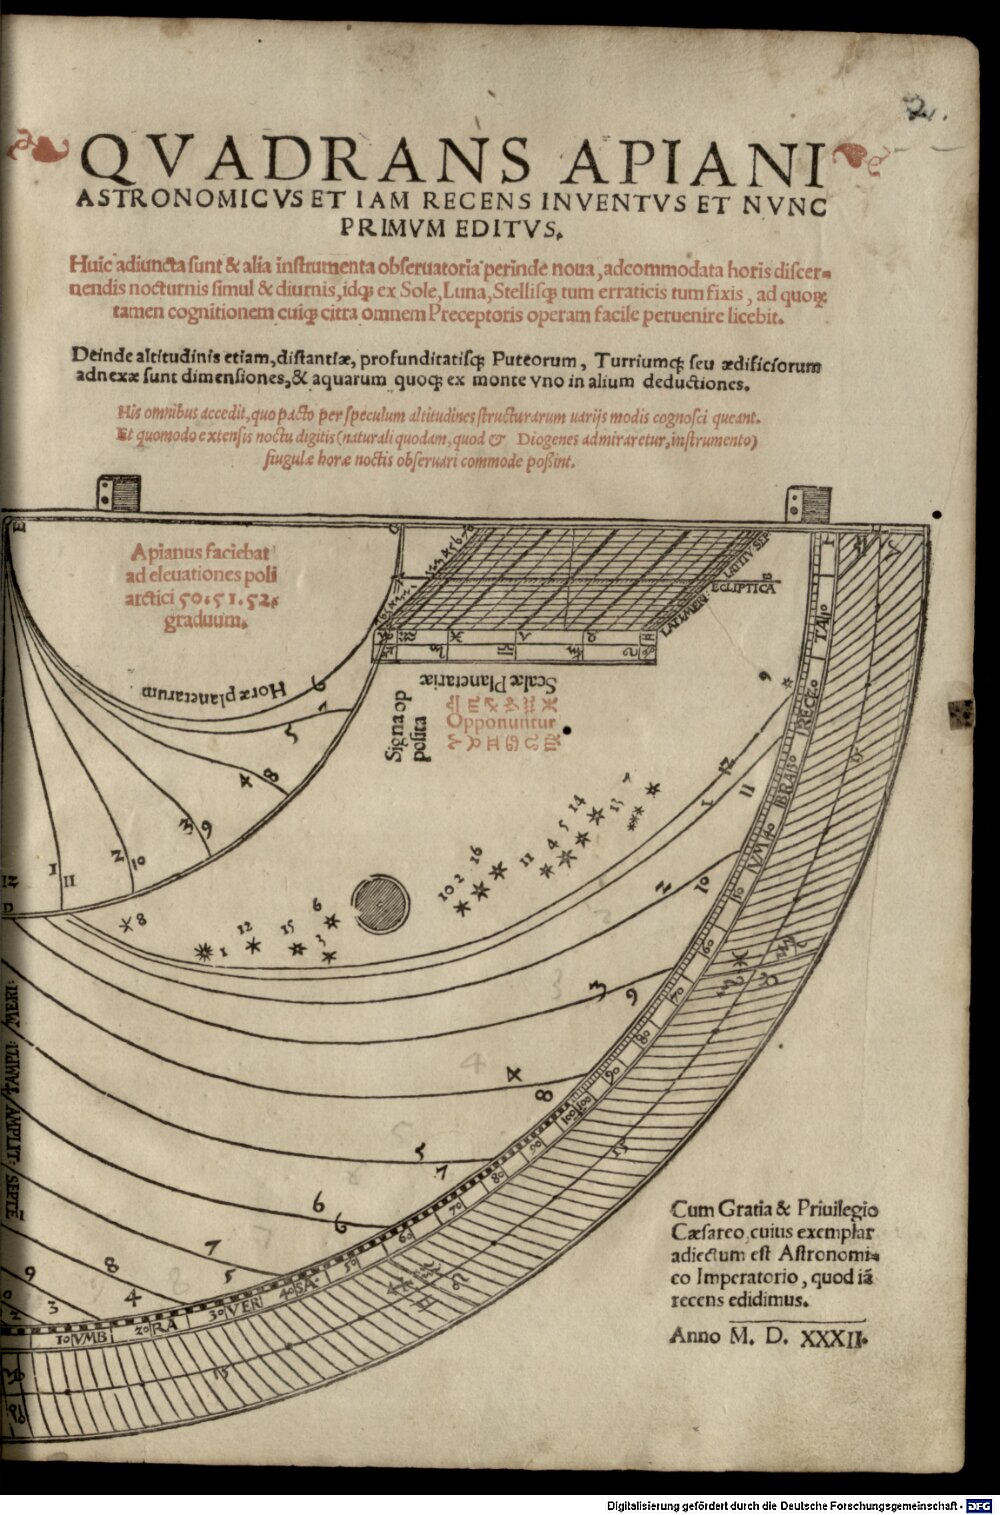 2.
QVADRANS APIANI
ASTRONOMICVS ET IAM RECENS INVENTVS ET NVNC
PRIMVM EDITVS.
Huic adiuncta sunt & alia instrumenta obseruatoria perinde noua, adcommodata horis discer=
nendis nocturnis simul & diurnis, idq; ex Sole, Luna, Stellisq; tum erraticis tum fixis, ad quoꝝ
tamen cognitionem cuiq; citra omnem Preceptoris operam facile peruenire licebit.
Deinde altitudinis etiam, distantiæ, profunditatisq; Puteorum, Turriumq; seu ædificiorum
adnexæ sunt dimensiones, & aquarum quoq; ex monte vno in alium deductiones.
His omnibus accedit, quo pacto per speculum altitudines structurarum uarijs modis cognosci queant.
Et quomodo extensis noctu digitis (naturali quodam, quod & Diogenes admiraretur, instrumento)
singulæ horæ noctis obseruari commode possint.
E
C
Apianus faciebat
ad eleuationes poli
arctici 50. 51. 52.
graduum.
LATITV SEP
ECLIPTICA
B
LATI MERI
Horæ planetarum
Scalæ Planetariæ
Signa op
posita
♎ ♏ ♐ ♑ ♒ ♓
Opponuntur
♈ ♉ ♊ ♋ ♌ ♍
6
7
5
8
4
9
3
10
2
11
1
12
D
8
1
12
15
6
3
10 2 16
11 4 5 14
13 7
9
12
1
11
2
10
3
9
4
8
5
7
6
6
7
5
8
4
9
3
VMB RA VER SA
50 60 70 80 90 100
100 90 80 70 60 50 40 30 20 10
VM BRA RECTA
15
15
AMPLIT: SEPTĒ
TAMPLI: MERI:
Cum Gratia & Priuilegio
Cæsareo, cuius exemplar
adiectum est Astronomi=
co Imperatorio, quod iā
recens edidimus.
Anno M. D. XXXII.
Digitalisierung gefördert durch die Deutsche Forschungsgemeinschaft - DFG